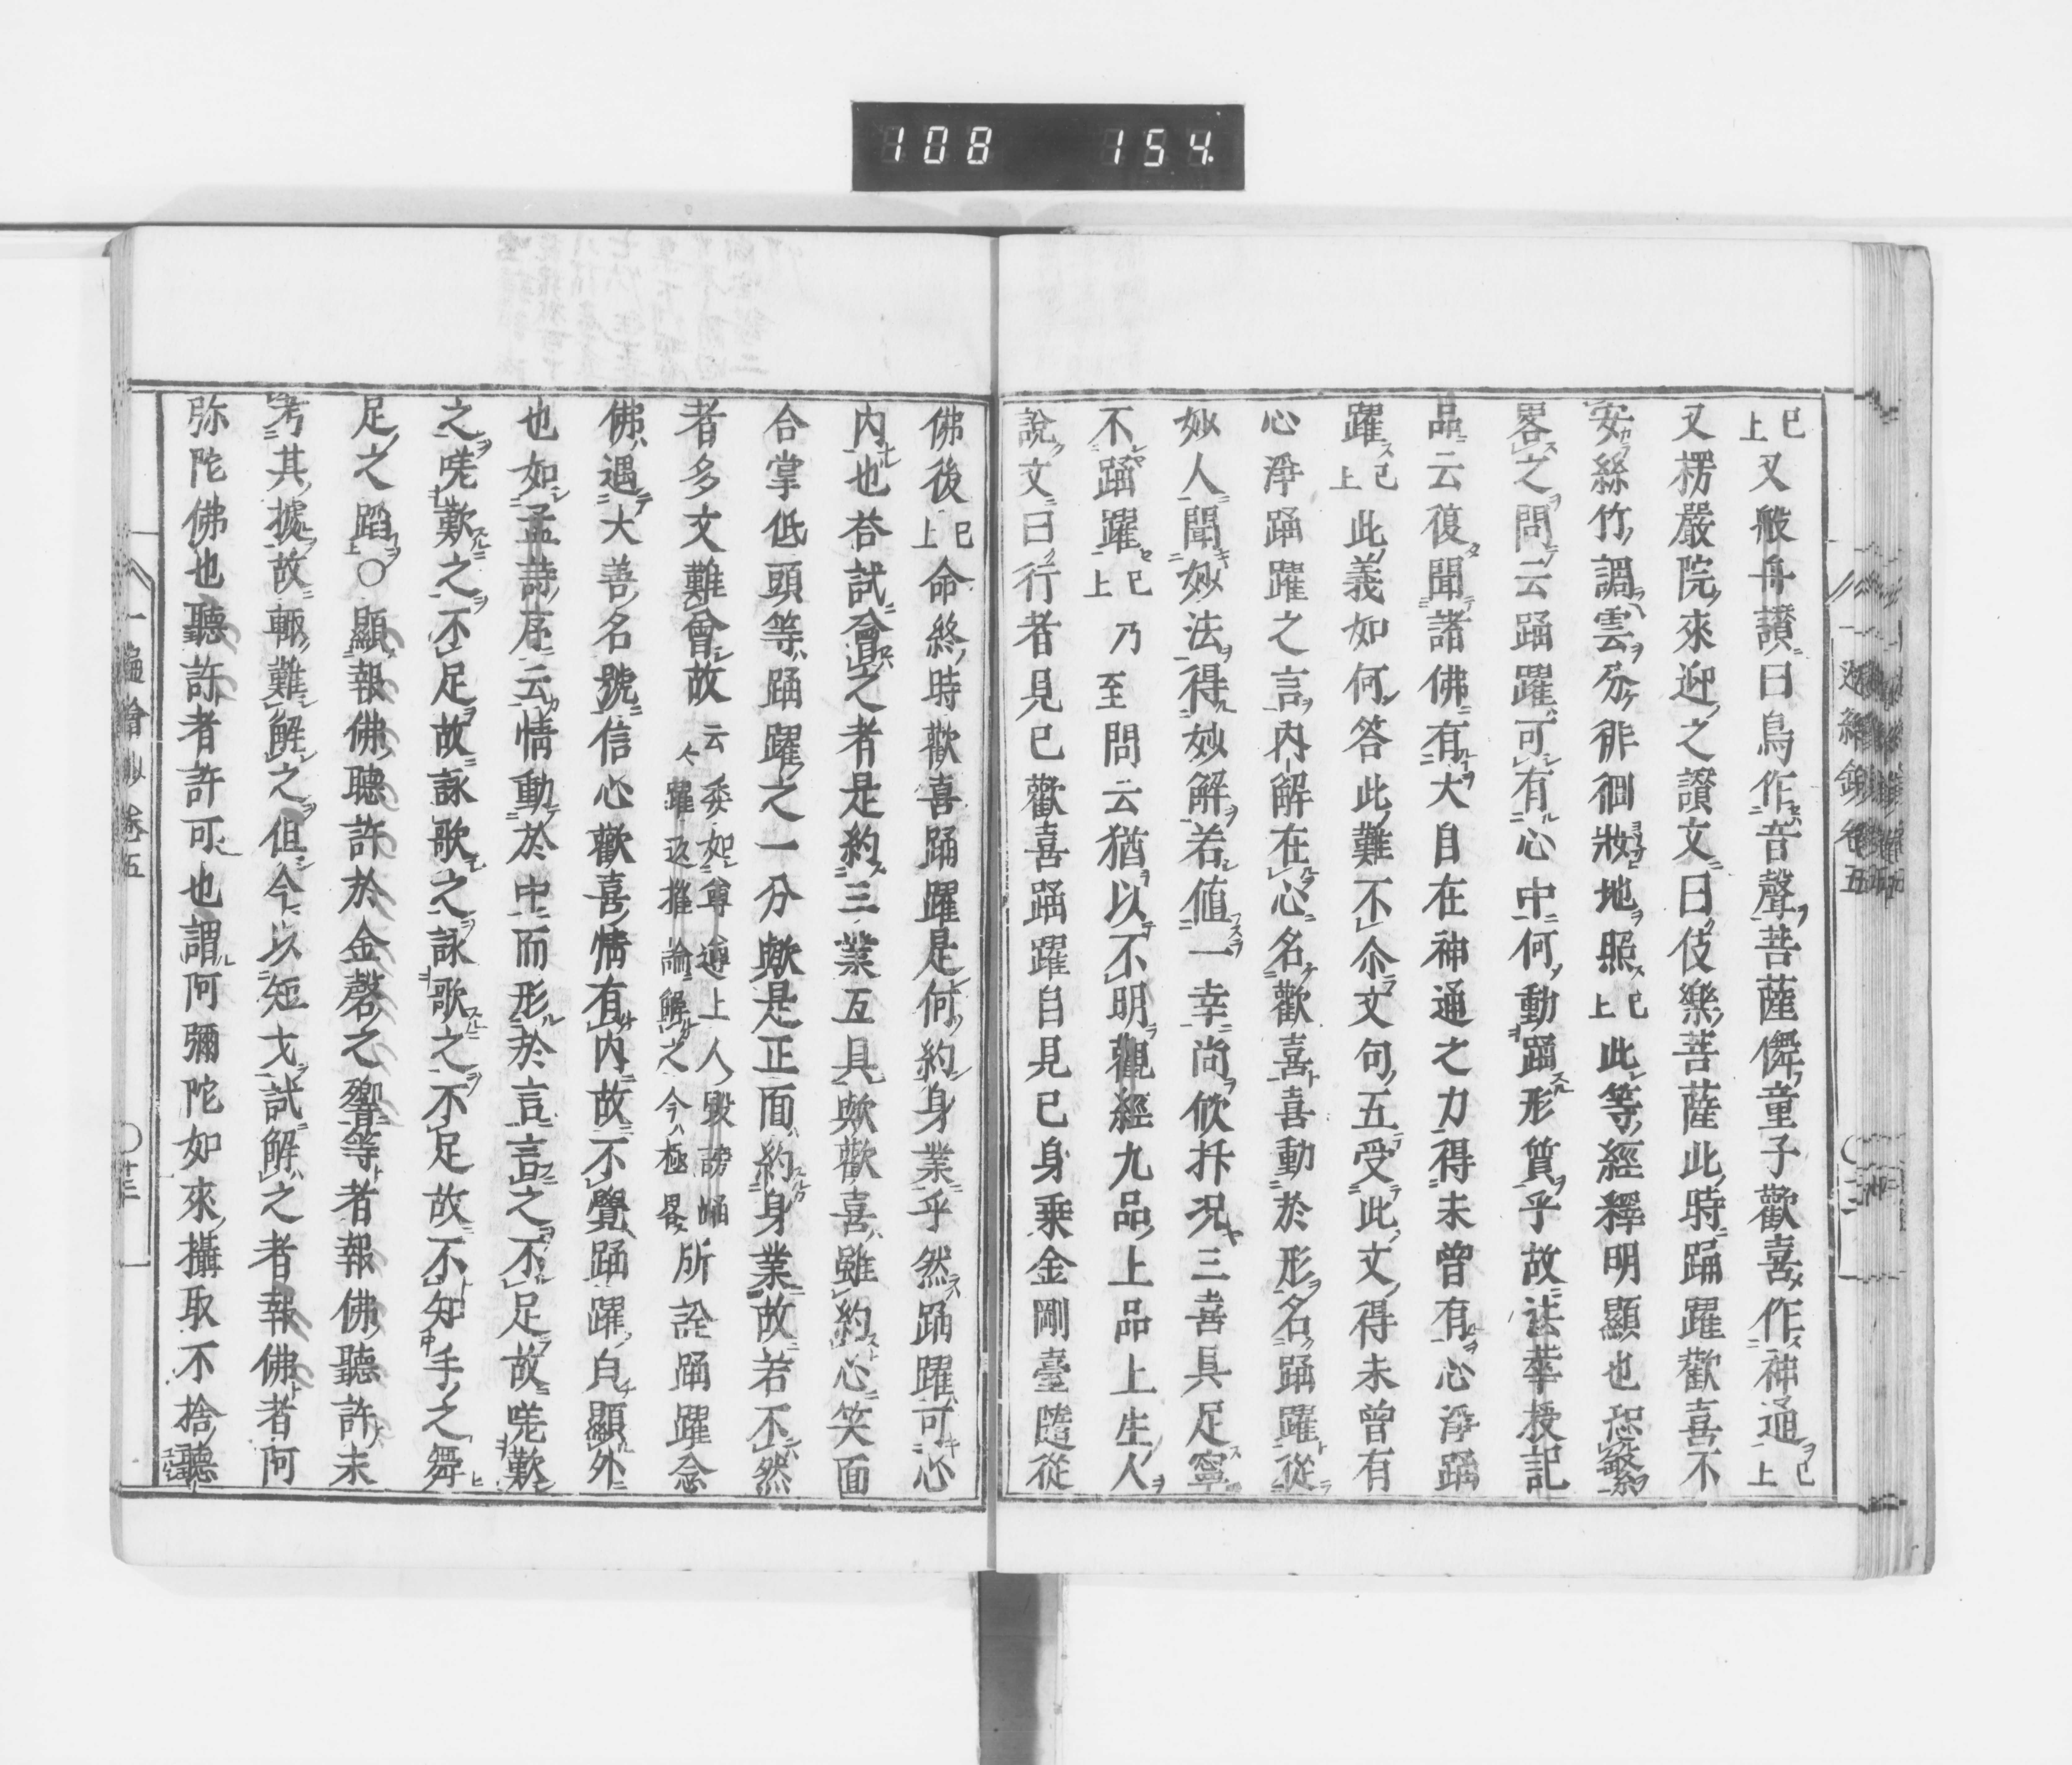 108 154.
已上又般舟讃曰鳥作音聲菩薩儛童子歡喜作神通已上
又楞嚴院來迎之讃文曰伎樂菩薩此時踊躍歡喜不
安絲竹調雲分徘徊妝地照已上此等經釋明顯也恐繁
畧之問云踊躍可有心中何動踊形質乎故法華授記
品云復聞諸佛有大自在神通之力得未曾有心淨踊
躍已上此義如何答此難不尒文句五受此文得未曾有
心淨踊躍之言内解在心名歡喜喜動於形名踊躍從
妙人聞妙法得妙解若値一幸尚欣抃況三喜具足寧
不踊躍已上乃至問云猶以不明觀經九品上品上生人
説文曰行者見已歡喜踊躍自見已身乗金剛臺隨從
佛後已上命終時歡喜踊躍是何約身業乎然踊躍可心
内也荅試會之者是約三業互具歟歡喜雖約心笑面
合掌低頭等踊躍之一分歟是正面約身業故若不然
者多文難會故云々委如尊遵上人毀謗踊躍返摧論解之今極畧所詮踊躍念
佛遇大善名號信心歡喜情有内故不覺踊躍白顯外
也如孟詩序云情動於中而形於言言之不足故嗟歎
之嗟歎之不足故詠歌之詠歌之不足故不知手之舞
足之蹈上〇顯報佛聽許於金磬之響等者報佛聽許未
考其據故輙難解之但今以短才試解之者報佛者阿
弥陀佛也聽許者許可也謂阿彌陀如來攝取不捨聽
一遍繪抄卷五 〇十三